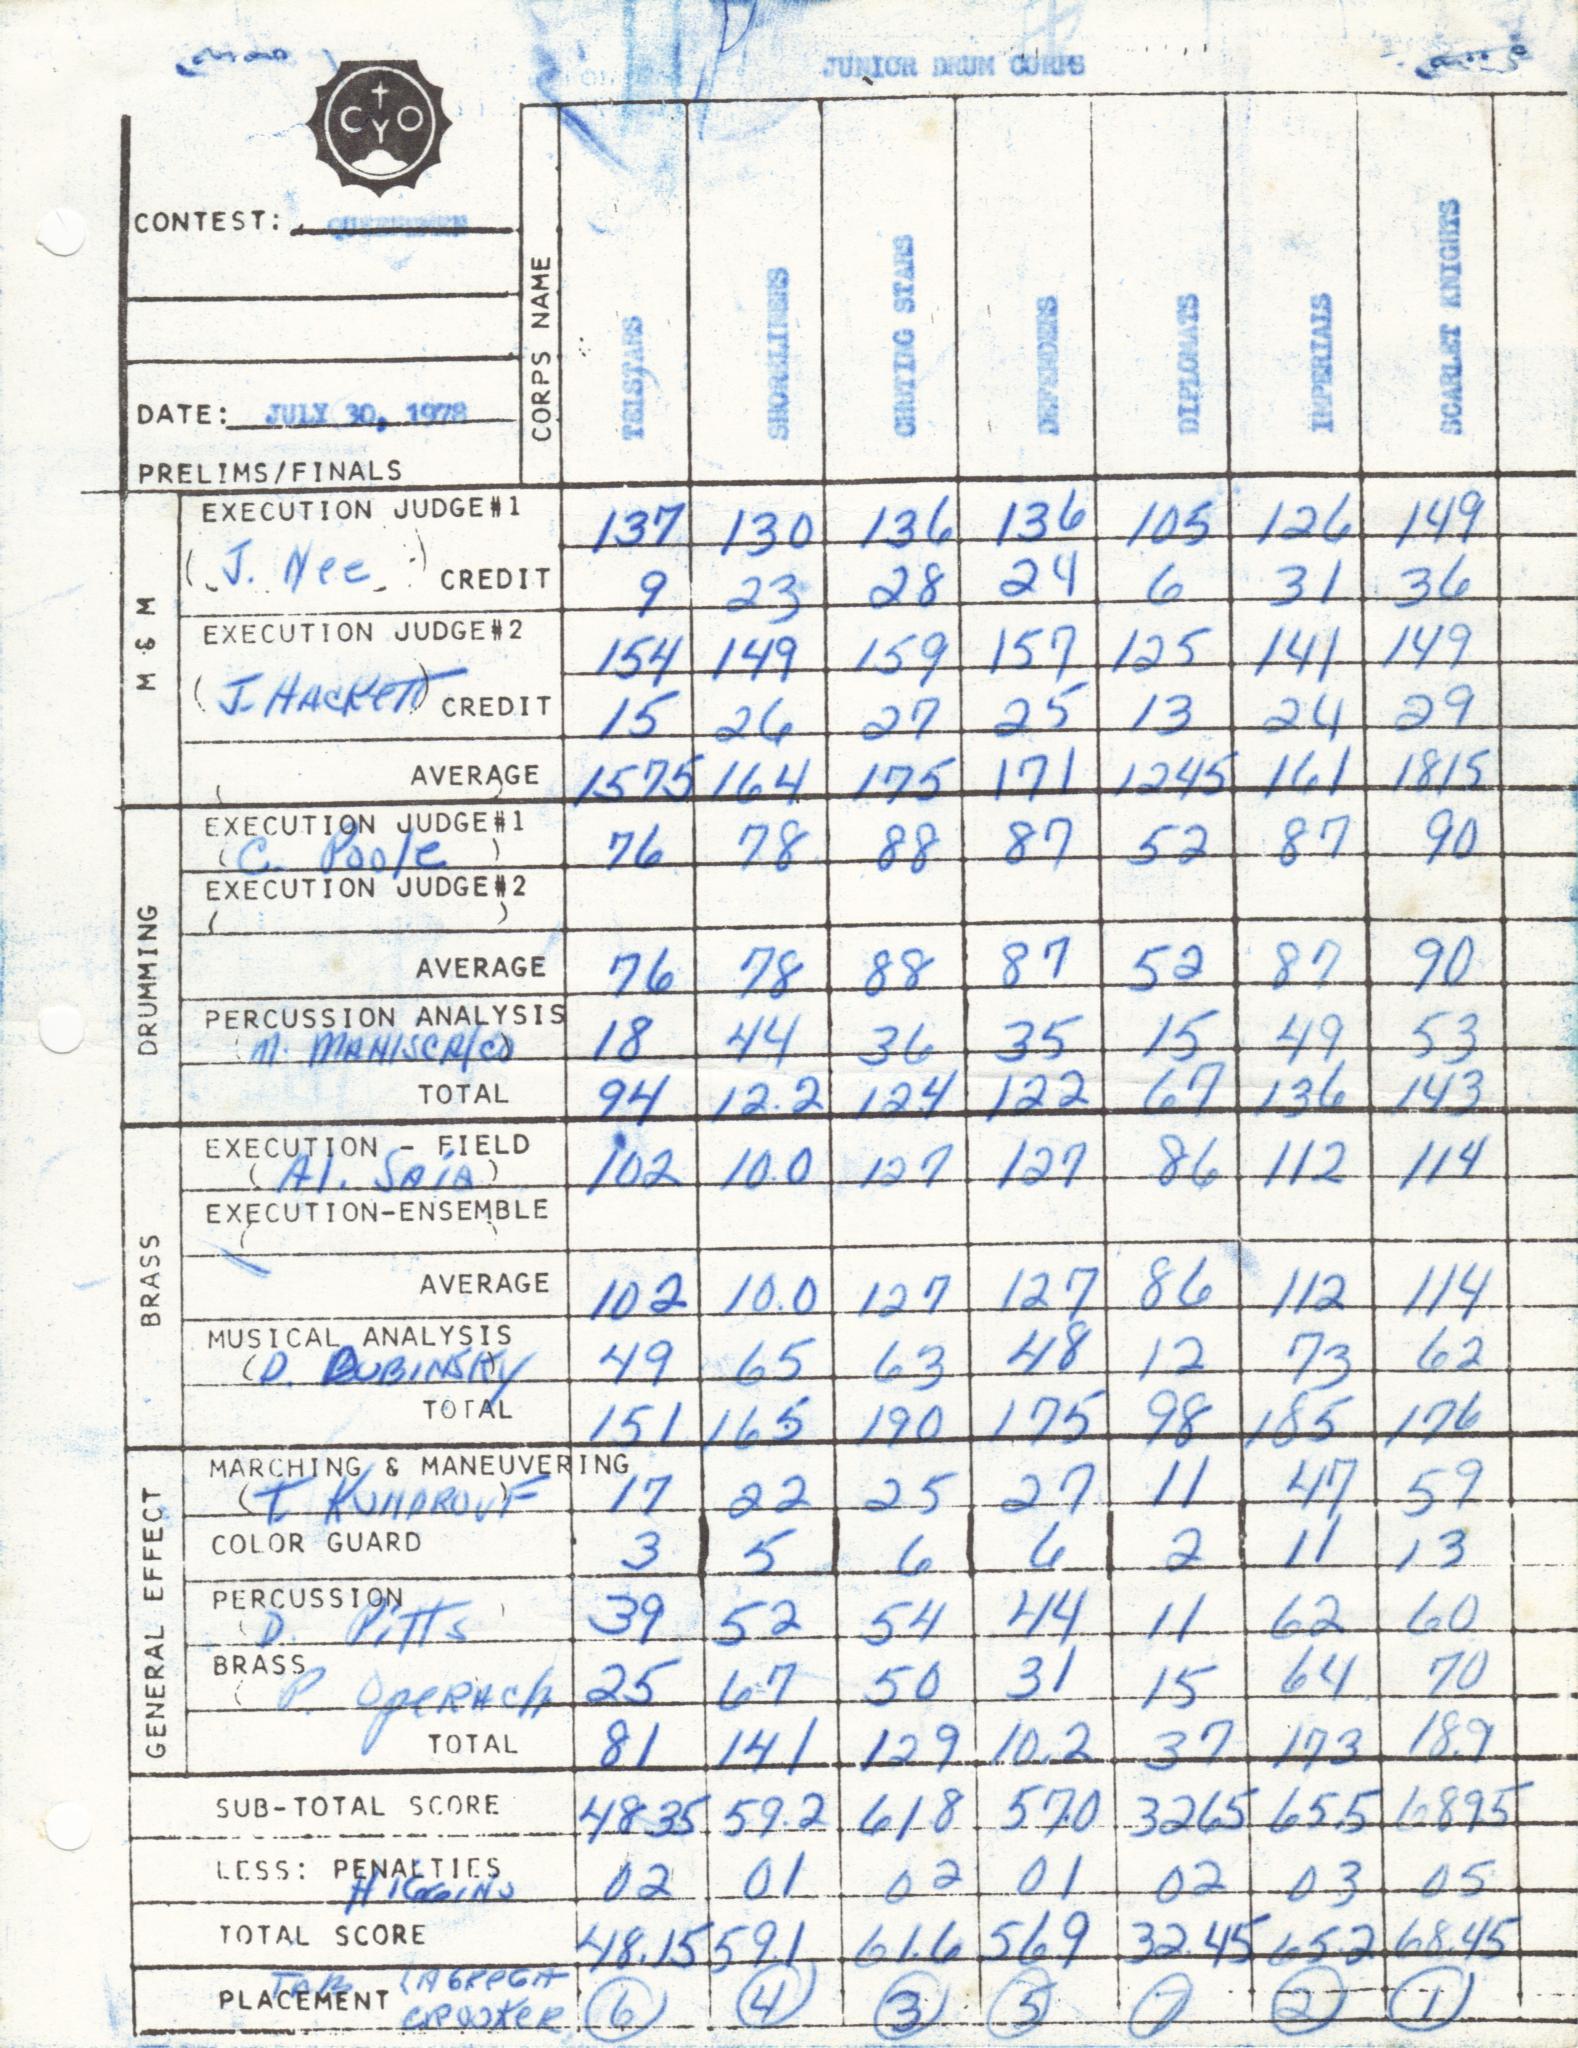 JUNIOR DRUM CORPS
CYO
CONTEST:
DATE: JULY 30, 1978
PRELIMS/FINALS
CORPS NAME
TELSTARS
SHORELINERS
SHOOTING STARS
DEFENDERS
DIPLOMATS
IMPERIALS
SCARLET KNIGHTS
M & M
EXECUTION JUDGE#1 137 130 136 136 105 126 149
(J. Nee) CREDIT 9 23 28 24 6 31 36
EXECUTION JUDGE#2 154 149 159 157 125 141 149
(J. HACKETT) CREDIT 15 26 27 25 13 24 29
AVERAGE 1575 164 175 171 1245 161 1815
DRUMMING
EXECUTION JUDGE#1
(C. Poole) 76 78 88 87 52 87 90
EXECUTION JUDGE#2
( )
AVERAGE 76 78 88 87 52 87 90
PERCUSSION ANALYSIS
(M. MANISCALCO) 18 44 36 35 15 49 53
TOTAL 94 12.2 124 122 67 136 143
BRASS
EXECUTION - FIELD
(Al. SAIA) 102 10.0 127 127 86 112 114
EXECUTION-ENSEMBLE
( )
AVERAGE 102 10.0 127 127 86 112 114
MUSICAL ANALYSIS
(D. DUBINSKY) 49 65 63 48 12 73 62
TOTAL 151 165 190 175 98 185 176
GENERAL EFFECT
MARCHING & MANEUVERING
(T. ) 17 22 25 27 11 47 59
COLOR GUARD 3 5 6 6 2 11 13
PERCUSSION
(D. Pitts) 39 52 54 44 11 62 60
BRASS
(P. ) 25 67 50 31 15 64 70
TOTAL 81 141 129 10.2 37 173 18.9
SUB-TOTAL SCORE 48.35 59.2 618 570 3265 65.5 6895
LESS: PENALTIES
HIGGINS 02 01 02 01 02 03 05
TOTAL SCORE 48.15 59.1 61.6 569 32.45 65.2 68.45
TAB
PLACEMENT CROOKER 6 4 3 5 7 2 1